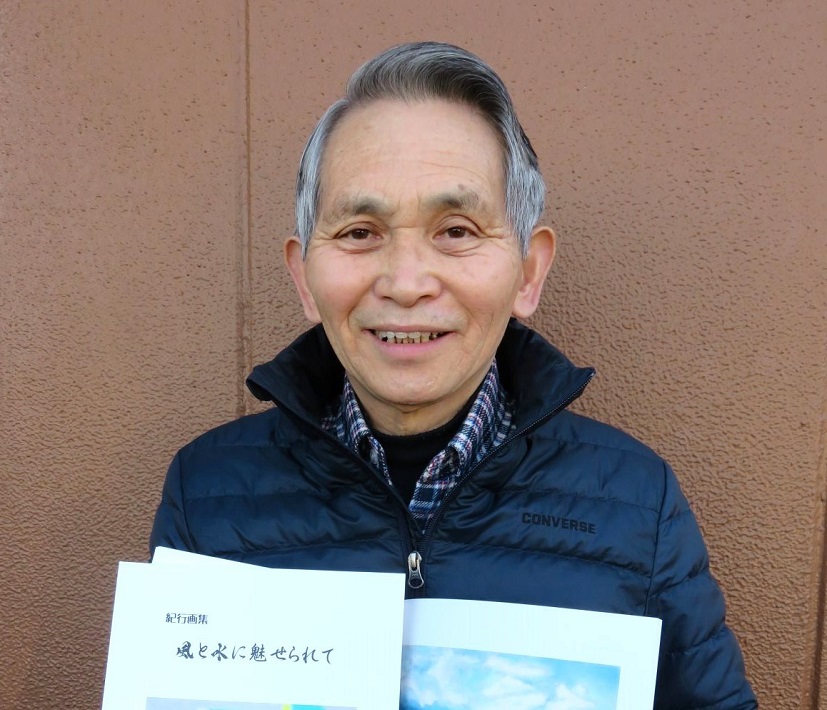 CONVERSE
紀行画集
風と水に魅せられて